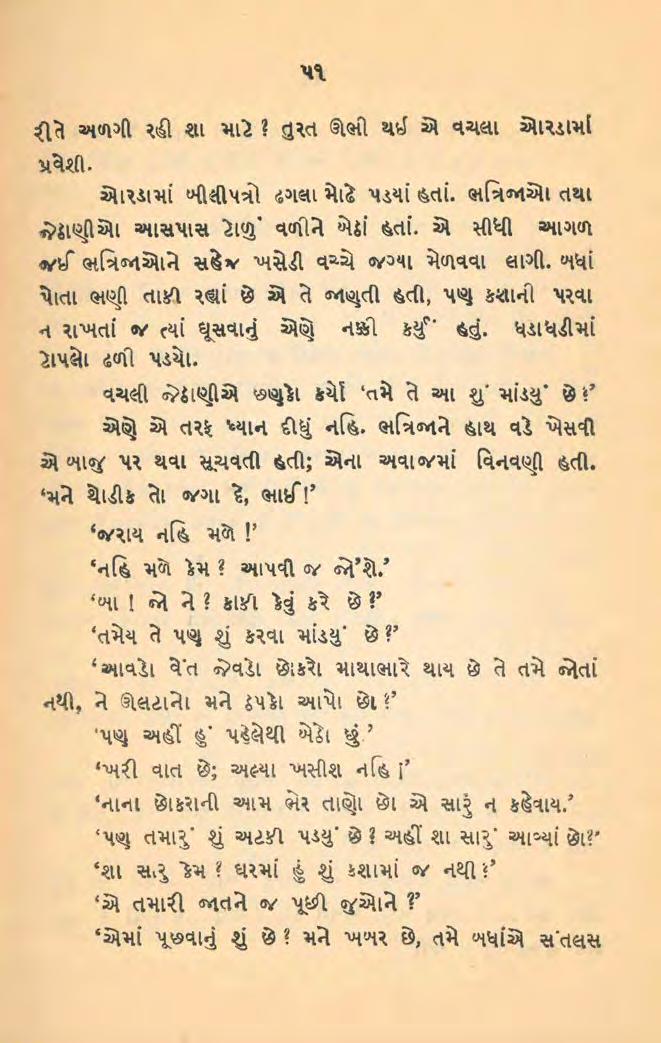 ૫૧
રીતે અળગી રહી શા માટે ? તુરત ઊભી થઈ એ વચલા ઓરડામાં
પ્રવેશી.
ઓરડામાં બીલીપત્રો ઢગલા મોઢે પડયાં હતાં. ભત્રિજાઓ તથા
જેઠાણીઓ આસપાસ ટોળું વળીને બેઠાં હતાં. એ સીધી આગળ
જઈ ભત્રિજાઓને સહેજ ખસેડી વચ્ચે જગ્યા મેળવવા લાગી. બધાં
પોતા ભણી તાકી રહ્યાં છે એ તે જાણતી હતી, પણ કશાની પરવા
ન રાખતાં જ ત્યાં ઘૂસવાનું એણે નક્કી કર્યું હતું. ધડાધડીમાં
ટોપલો ઢળી પડયો.
વચલી જેઠાણીએ છણકો કર્યો ‘તમે તે આ શું માંડયું છે ?’
એણે એ તરફ ધ્યાન દીધું નહિ. ભત્રિજાને હાથ વડે ખેસવી
એ બાજુ પર થવા સૂચવતી હતી; એના અવાજમાં વિનવણી હતી.
‘મને થોડીક તો જગા દે, ભાઈ!’
‘જરાય નહિ મળે !’
‘નહિ મળે કેમ ? આપવી જ જો’શે.’
‘બા ! જો ને ? કાકી કેવું કરે છે ?’
‘તમેય તે પણ શું કરવા માંડયું છે ?’
‘આવડો વેંત જેવડો છોકરો માથાભારે થાય છે તે તમે જોતાં
નથી, ને ઊલટાનો મને ઠપકો આપો છો ?’
‘પણ અહીં હું પહેલેથી બેઠો છું.’
‘ખરી વાત છે; અલ્યા ખસીશ નહિ !’
‘નાના છોકરાની આમ ભેર તાણો છો એ સારૂં ન કહેવાય.’
‘પણ તમારું શું અટકી પડયું છે ? અહીં શા સારું આવ્યાં છો?’
‘શા સારુ કેમ ? ઘરમાં હું શું કશામાં જ નથી ?’
‘એ તમારી જાતને જ પૂછી જુઓને ?’
‘એમાં પૂછવાનું શું છે ? મને ખબર છે, તમે બધાંએ સંતલસ